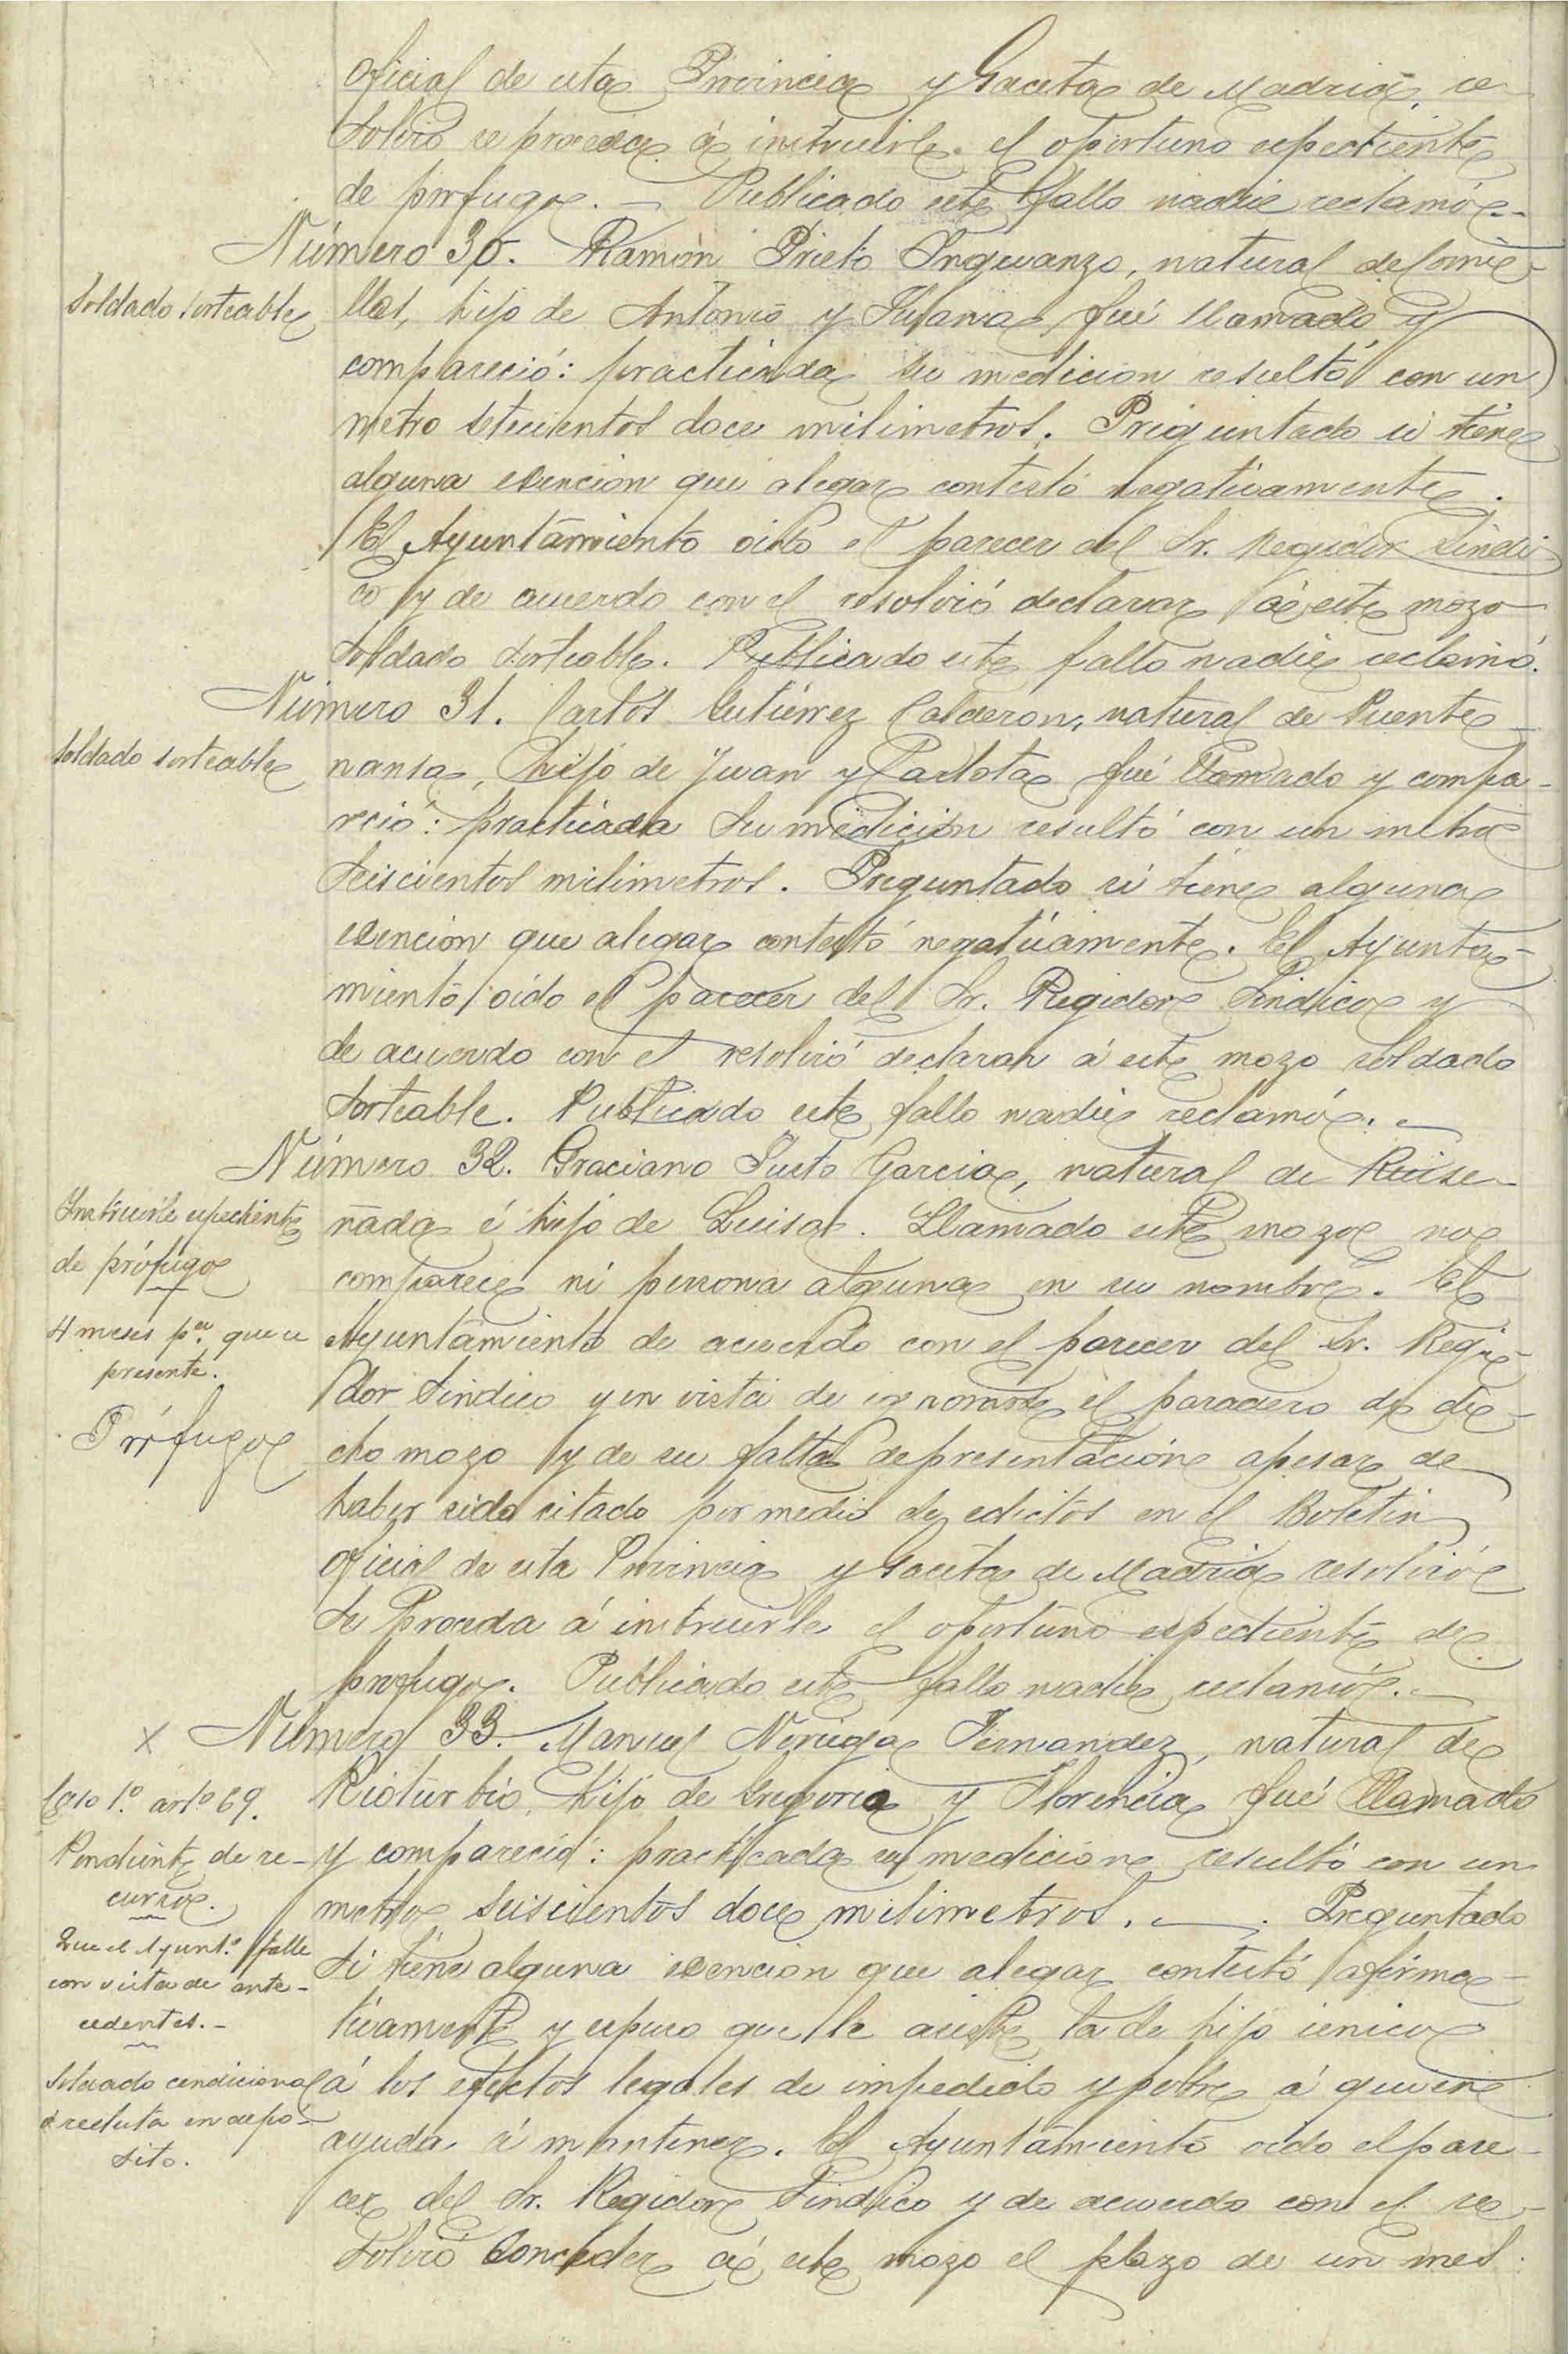 oficial de esta Provincia y Gaceta de Madrid, re
solvió se proceda á instruirle el oportuno espediente
de prófugo. — Publicado este fallo nadie reclamó.-
Número 30. Ramón Prieto Inguanzo, natural de Comi-
Soldado sorteable
llas, hijo de Antonio y Juana fué llamado y
compareció: practicada su medicion resultó con un
metro setecientos doce milimetros. Preguntado si tiene
alguna esencion que alegar contestó negativamente.
El Ayuntamiento oido el parecer del Sr. Regidor Síndi
co y de acuerdo con el resolvió declarar á este mozo
soldado sorteable. Publicado este fallo nadie reclamó.
Número 31. Carlos Gutiérrez Calderon, natural de Puente-
Soldado sorteable
nansa, hijo de Juan y Carlota fué llamado y compa-
reció: practicada su medición resultó con un metro
seiscientos milimetros. Preguntado si tiene alguna
esencion que alegar contestó negativamente. El Ayunta-
miento oido el parecer del Sr. Regidor Síndico y
de acuerdo con el resolvió declarar á este mozo soldado
sorteable. Publicado este fallo nadie reclamó. —
Número 32. Graciano Justo Garcia, natural de Ruise-
Instruirle espediente
de prófugo
4 meses pª. que se
presente.
Prófugo
ñada é hijo de Luisa. Llamado este mozo no
comparece ni persona alguna en su nombre. El
Ayuntamiento de acuerdo con el parecer del Sr. Regi-
dor Síndico y en vista de ignorarse el paradero de di-
cho mozo y de su falta de presentación apesar de
haber sido citado por medio de edictos en el Boletin
oficial de esta Provincia y Gaceta de Madrid resolvió
se proceda á instruirle el oportuno espediente de
prófugo. Publicado este fallo nadie reclamó. —
x Número 33. Manuel Noriega Fernandez, natural de
Caso 1.º artº 69.
Pendiente de re-
curso.
Que el Ayunt.º falle
con vista de ante-
cedentes.-
Soldado condicional
ó recluta en depó-
sito.
Rioturbio, hijo de Gregorio y Florencia fué llamado
y compareció: practicada su medicion resultó con un
metro seiscientos doce milimetros. — . Preguntado
si tiene alguna esencion que alegar contestó afirma-
tivamente y espuso que le asiste la de hijo unico
á los efectos legales de impedido y pobre á quien
ayuda á mantener. El Ayuntamiento oido el pare-
cer del Sr. Regidor Síndico y de acuerdo con el re-
solvió conceder á este mozo el plazo de un mes